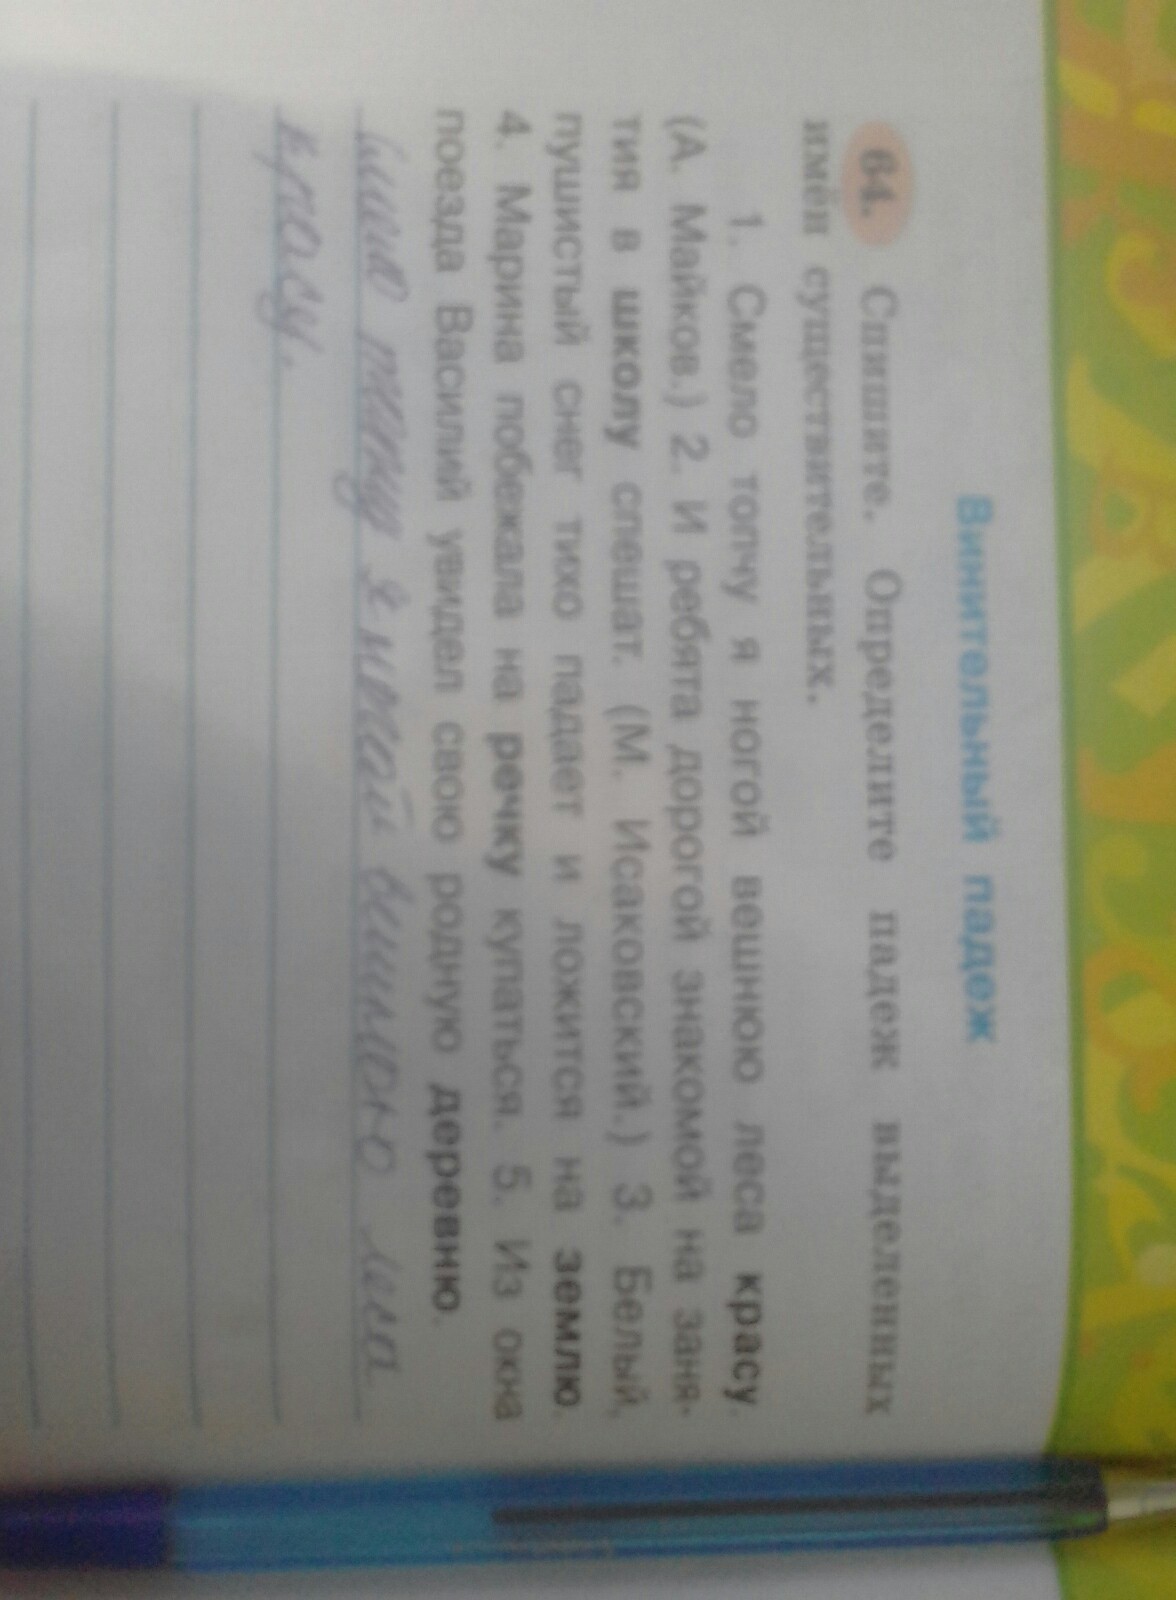 Винительный падеж
64. Спишите. Определите падеж выделенных
имён существительных.
1. Смело топчу я ногой вешнюю леса красу.
(А. Майков.) 2. И ребята дорогой знакомой на заня-
тия в школу спешат. (М. Исаковский.) 3. Белый,
пушистый снег тихо падает и ложится на землю.
4. Марина побежала на речку купаться. 5. Из окна
поезда Василий увидел свою родную деревню.
я ногой вешнюю леса
красу.